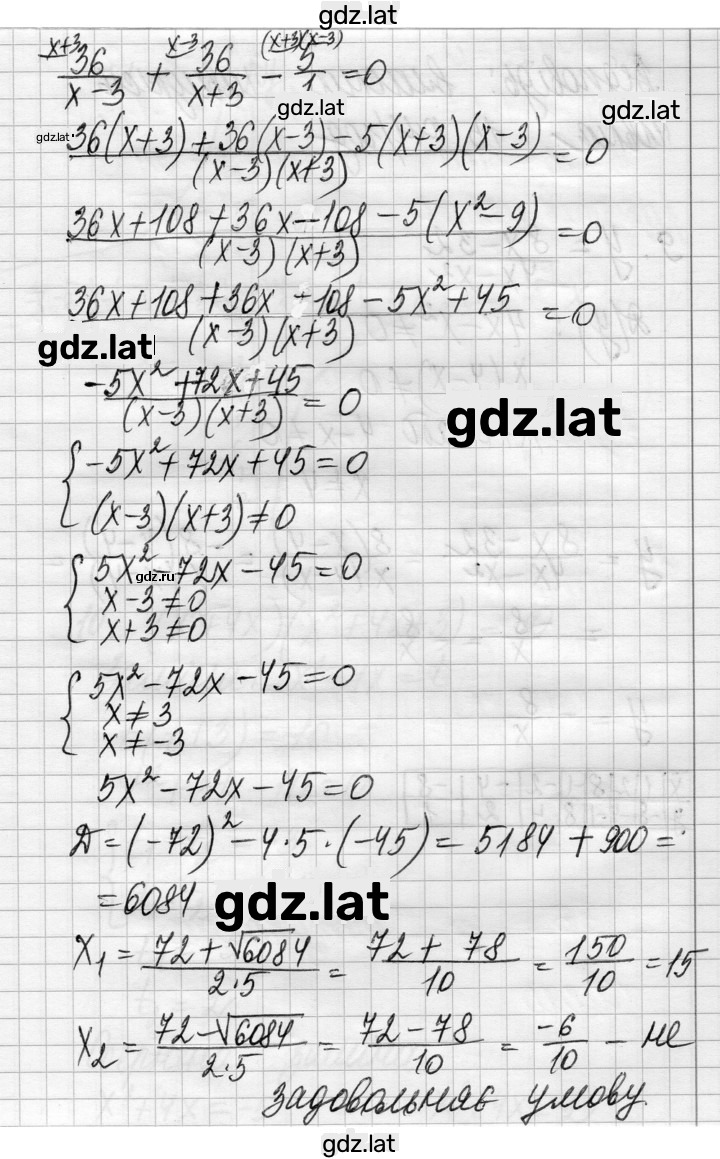 gdz.lat
x+3 x-3 (x+3)(x-3)
36/(x-3) + 36/(x+3) - 5/1 = 0
gdz.lat gdz.lat
gdz.lat (36(x+3)+36(x-3)-5(x+3)(x-3))/((x-3)(x+3)) = 0
(36x+108+36x-108-5(x²-9))/((x-3)(x+3)) = 0
(36x+108+36x-108-5x²+45)/((x-3)(x+3)) = 0
gdz.lat
(-5x²+72x+45)/((x-3)(x+3)) = 0
gdz.lat
{ -5x²+72x+45=0
(x-3)(x+3)≠0
{ 5x²-72x-45=0
gdz.ru
x-3≠0
x+3≠0
{ 5x²-72x-45=0
x≠3
x≠-3
5x²-72x-45=0
Д=(-72)²-4·5·(-45)=5184+900=
=6084 gdz.lat
x₁ = (72+√6084)/(2·5) = (72+78)/10 = 150/10 = 15
x₂ = (72-√6084)/(2·5) = (72-78)/10 = -6/10 - не
задовольняє умову
gdz.lat